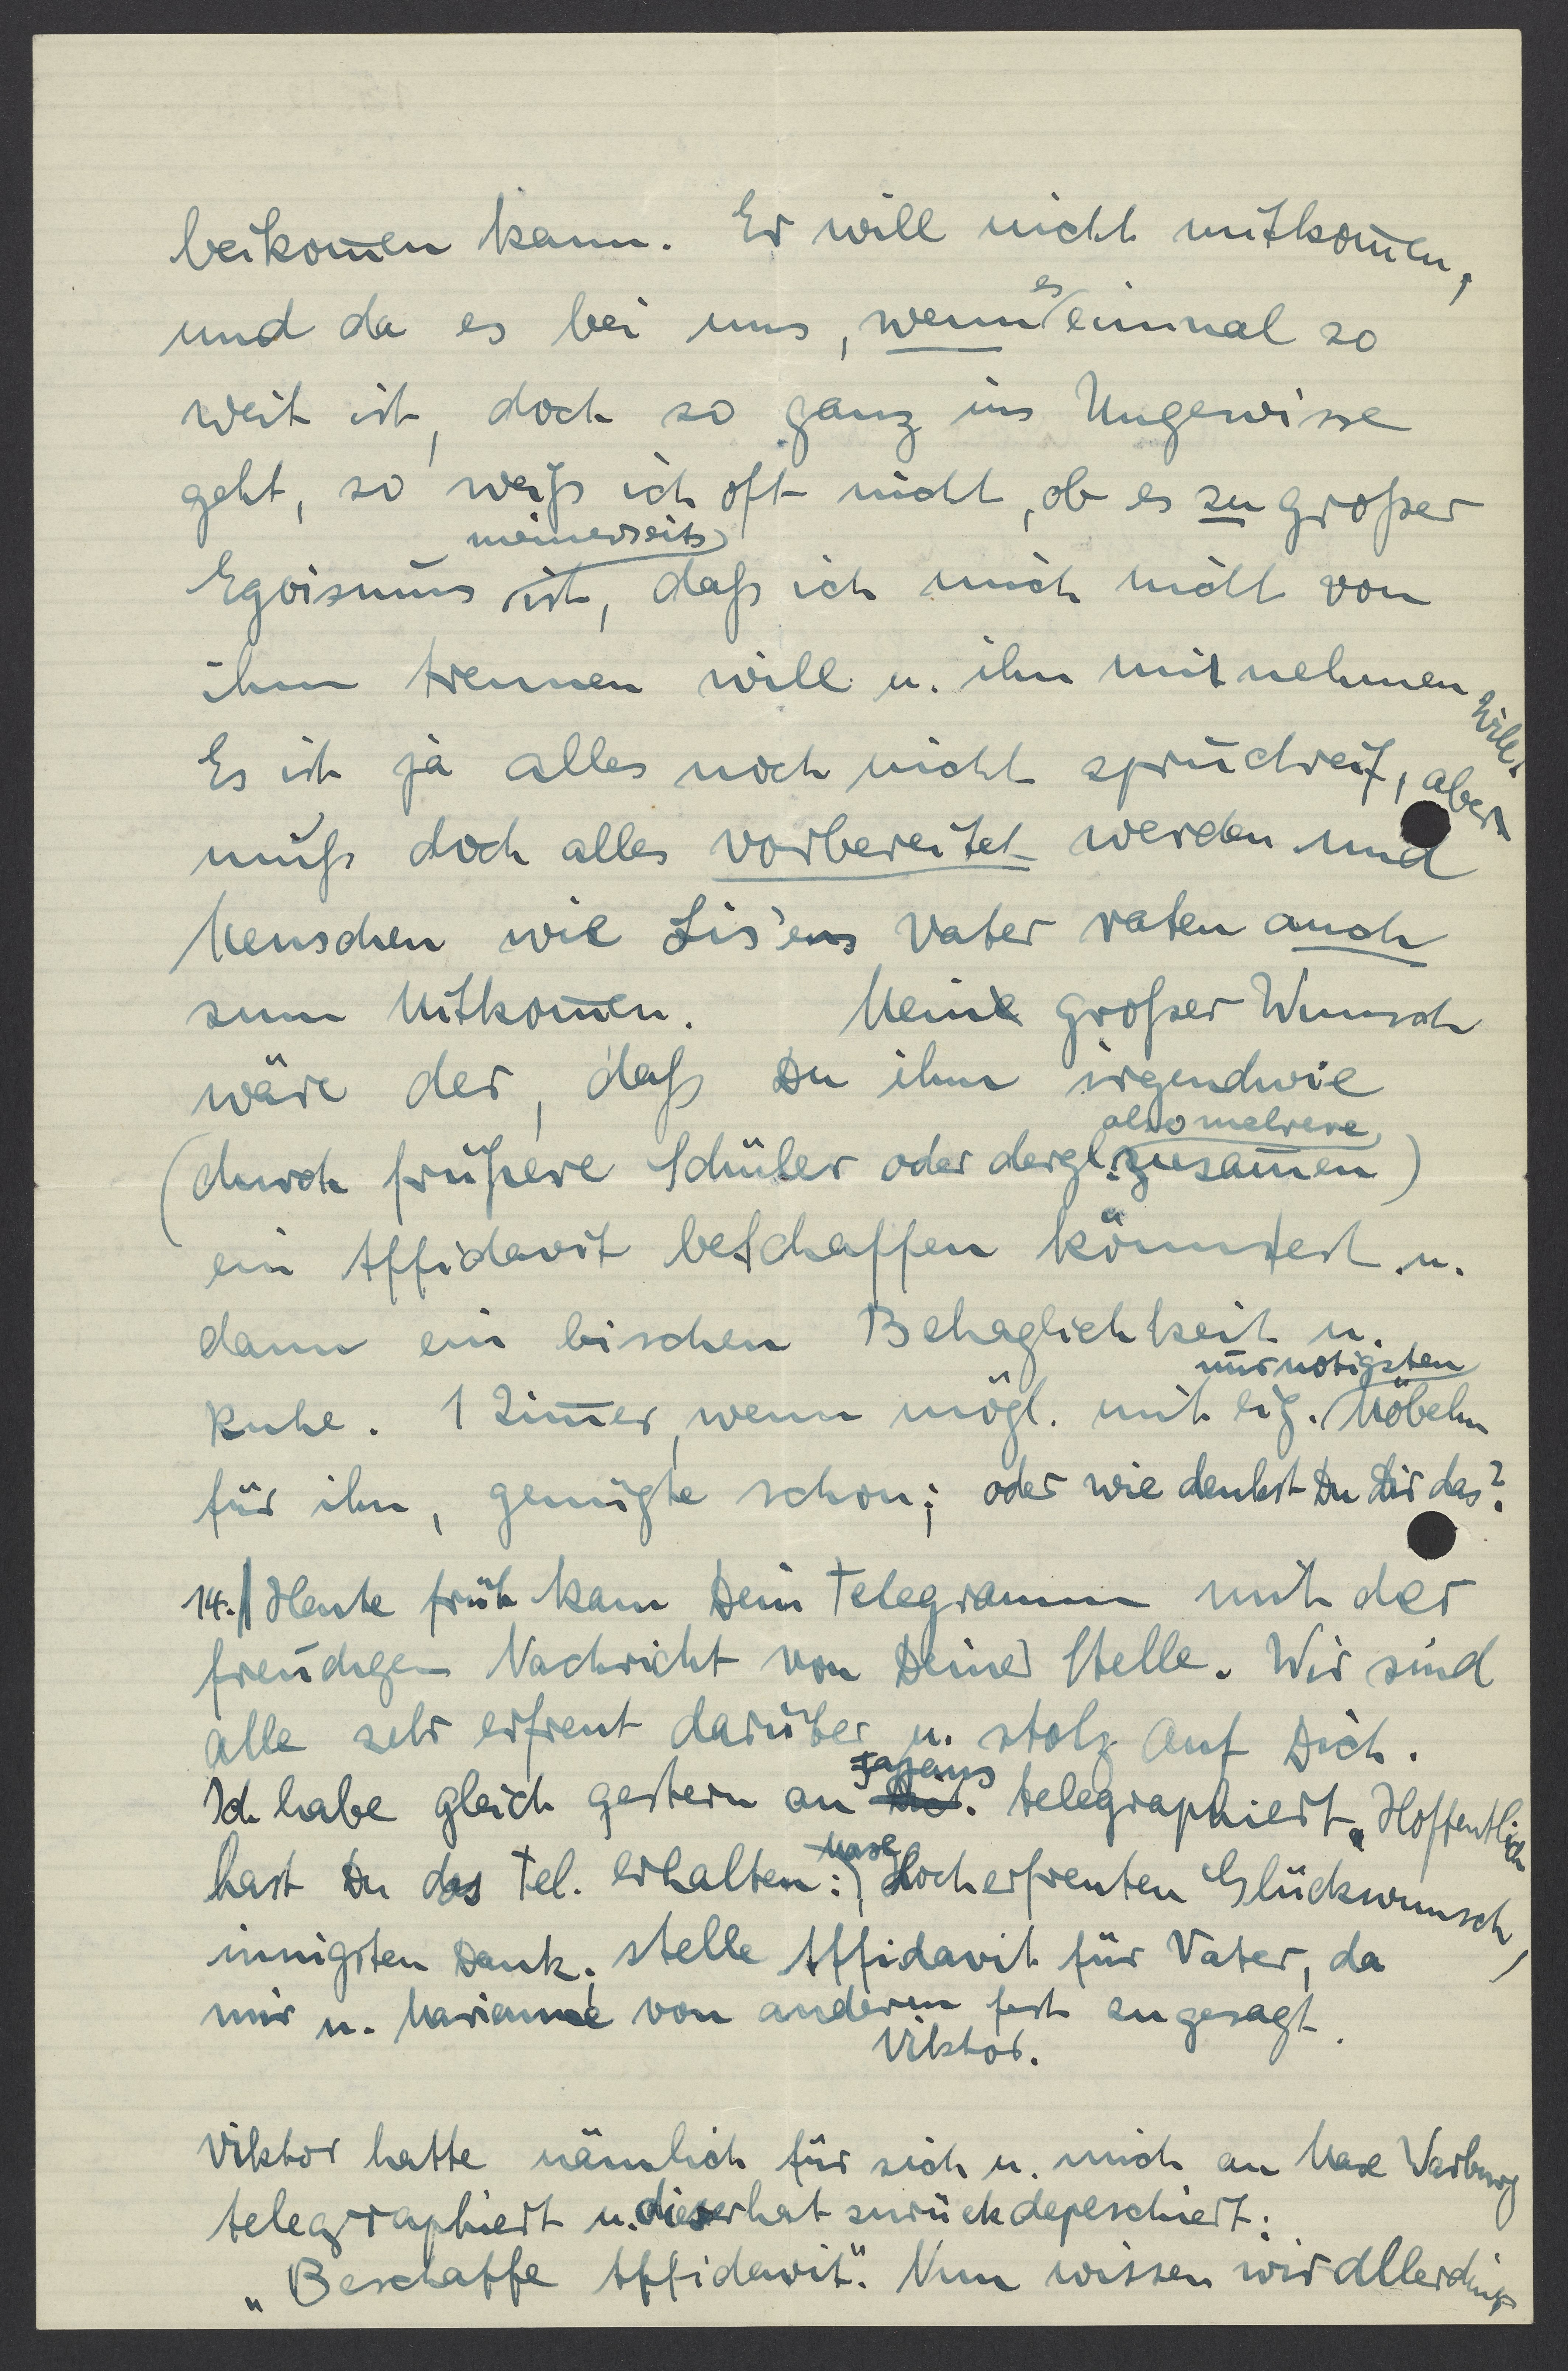 beikom̅en kann. Er will nicht mitkom̅en,
und da es bei uns, wenn es einmal so
weit ist, doch so ganz ins Ungewisse
geht, so weiß ich oft nicht, ob es zu großer
Egoismus meinerseits ist, daß ich mich nicht von
ihm trennen will u. ihn mitnehmen will.
Es ist ja alles noch nicht spruchreif, aber
muß doch alles vorbereitet werden und
Menschen wie Lis'ens Vater raten auch
zum Mitkom̅en. Mein großer Wunsch
wäre der, daß Du ihm irgendwie
(durch frühere Schüler oder dergl. also mehrere zusam̅en)
ein Affidavit beschaffen könntest u.
dann ein bischen Behaglichkeit u.
Ruhe. 1 Zim̅er, wenn mögl. mit eig. nur nötigsten Möbeln
für ihn, genügte schon; oder wie denkst Du Dir das?
14. Heute früh kam Dein Telegramm mit der
freudigen Nachricht von Deiner Stelle. Wir sind
alle sehr erfreut darüber u. stolz auf Dich.
Ich habe gleich gestern an Fajans telegraphiert. Hoffentlich
hast Du das Tel. erhalten: Hocherfreuten Glückwunsch,
innigsten Dank, stelle Affidavit für Vater, da
mir u. Marianne von anderen fest zugesagt.
Viktor.
Viktor hatte nämlich für sich u. mich an Max Warburg
telegraphiert u. dieser hat zurückdepeschiert:
„Beschaffe Affidavit". Nun wissen wir allerdings